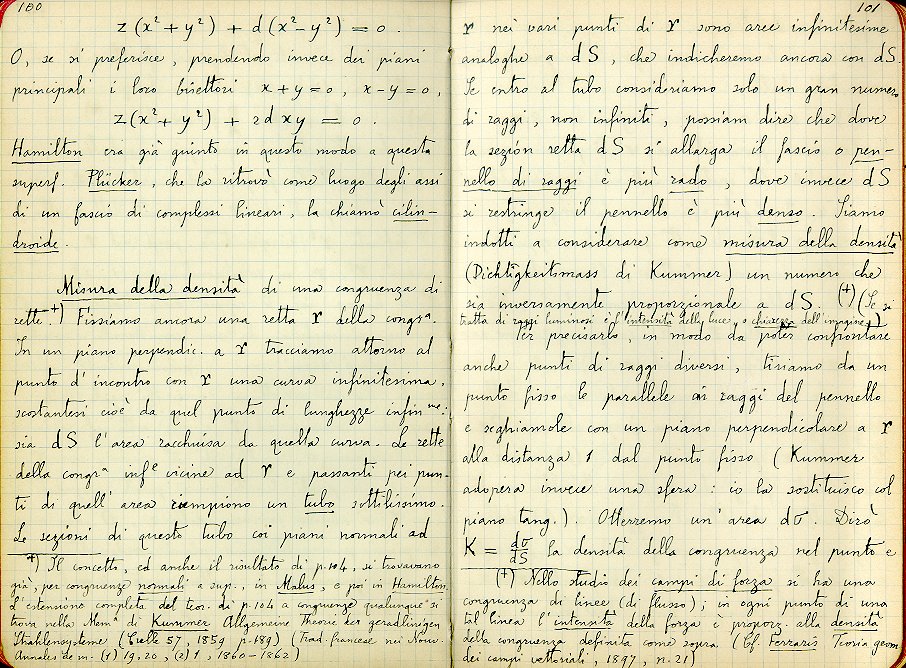 100
z(x²+y²) + d(x²-y²) = 0.
O, se si preferisce, prendendo invece dei piani
principali i loro bisettori x+y=0, x-y=0,
z(x²+y²) + 2dxy = 0.
Hamilton era già giunto in questo modo a questa
superf. Plücker, che la ritrovò come luogo degli assi
di un fascio di complessi lineari, la chiamò cilin-
droide.
Misura della densità di una congruenza di
rette.+) Fissiamo ancora una retta r della congr.a
In un piano perpendic. a r tracciamo attorno al
punto d'incontro con r una curva infinitesima,
scostantesi cioè da quel punto di lunghezze infin.me:
sia dS l'area racchiusa da quella curva. Le rette
della congr.a inf.e vicine ad r e passanti pei pun-
ti di quell'area riempiono un tubo sottilissimo.
Le sezioni di questo tubo coi piani normali ad
+) Il concetto, ed anche il risultato di p.104, si trovavano
già, per congruenze normali a sup., in Malus, e poi in Hamilton.
L'estensione completa del teor. di p.104 a congruenze qualunque si
trova nella Mem.a di Kummer Allgemeine Theorie der geradlinigen
Strahlensysteme (Crelle 57, 1859 p.189) (Trad. francese nei Nouv.
Annales de m. (1) 19, 20, (2) 1, 1860-1862)
101
r nei vari punti di r sono aree infinitesime
analoghe a dS, che indicheremo ancora con dS.
Se entro al tubo consideriamo solo un gran numero
di raggi, non infiniti, possiam dire che dove
la sezion retta dS si allarga il fascio o pen-
nello di raggi è più rado, dove invece dS
si restringe il pennello è più denso. Siamo
indotti a considerare come misura della densità
(Dichtigkeitsmass di Kummer) un numero che
sia inversamente proporzionale a dS. (+) (Se si
tratta di raggi luminosi è l'intensità della luce, o chiarezza dell'imagine.)
Per precisarlo, in modo da poter confrontare
anche punti di raggi diversi, tiriamo da un
punto fisso le parallele ai raggi del pennello
e seghiamole con un piano perpendicolare a r
alla distanza 1 dal punto fisso (Kummer
adopera invece una sfera: io la sostituisco col
piano tang.). Otterremo un'area dσ. Dirò
K = dσ/dS la densità della congruenza nel punto e
(+) Nello studio dei campi di forza si ha una
congruenza di linee (di flusso); in ogni punto di una
tal linea l'intensità della forza è proporz. alla densità
della congruenza definita come sopra. (Cf. Ferraris Teoria geom
dei campi vettoriali, 1897, n.21)